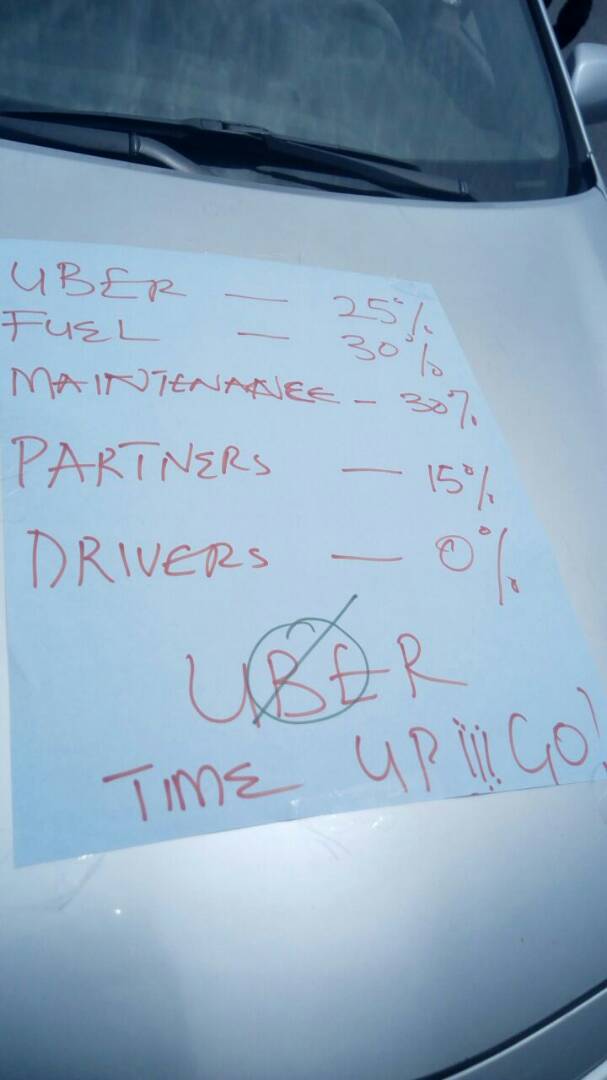 UBER — 25%
FUEL — 30%
MAINTENANEE - 30%
PARTNERS — 15%
DRIVERS — 0%
UBER
TIME UP!!! GO!